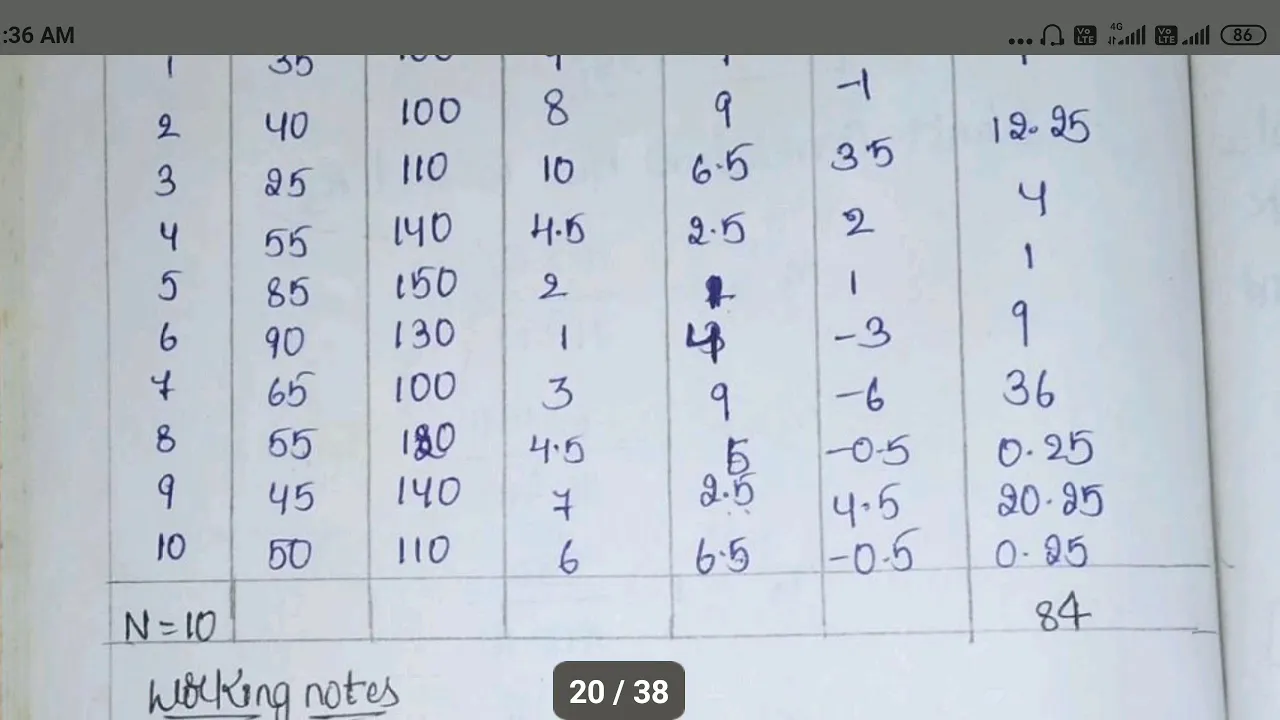 :36 AM 4G Vo LTE Vo LTE 86
1 35
2 40 100 8 9 -1
3 25 110 10 6.5 35 12.25
4 55 140 4.5 2.5 2 4
5 85 150 2 1 1 1
6 90 130 1 4 -3 9
7 65 100 3 9 -6 36
8 55 120 4.5 5 -0.5 0.25
9 45 140 7 2.5 4.5 20.25
10 50 110 6 6.5 -0.5 0.25
N=10 84
Working notes
20 / 38